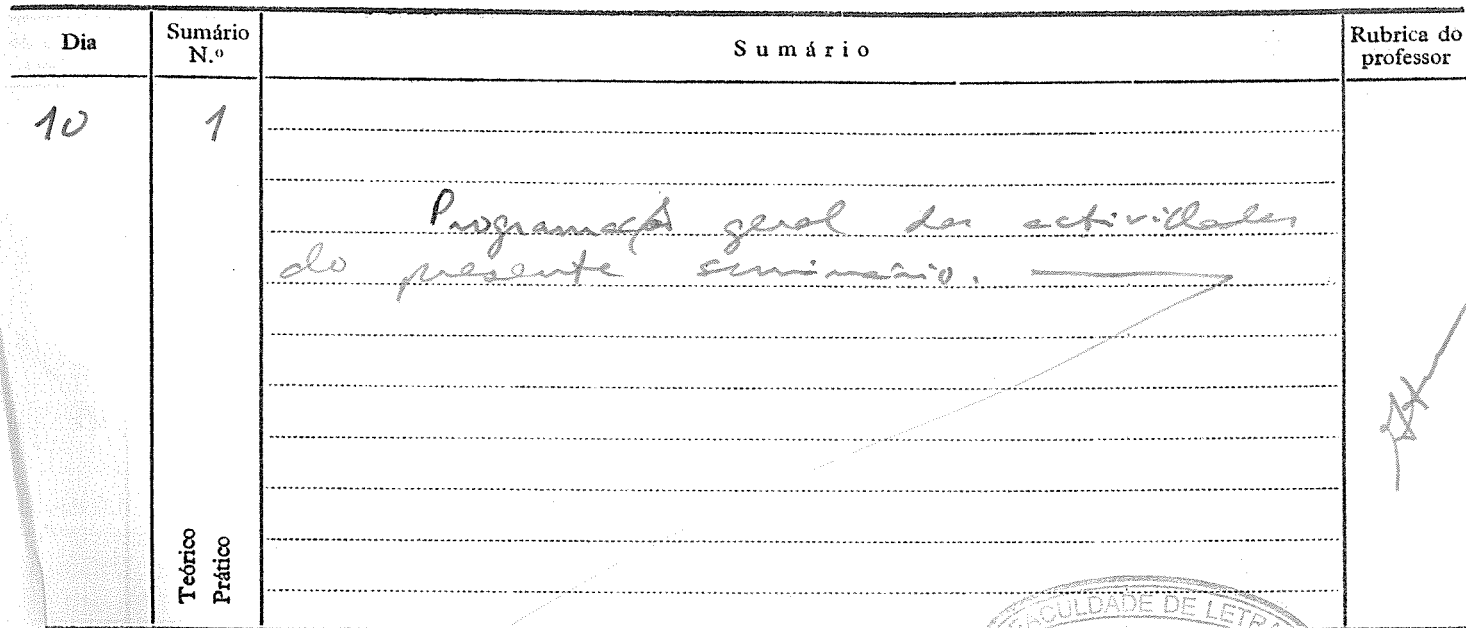 Dia
Sumário N.º
Sumário
Rubrica do professor
10
1
Programação geral das actividades
do presente seminário.
Teórico
Prático
FACULDADE DE LETRA